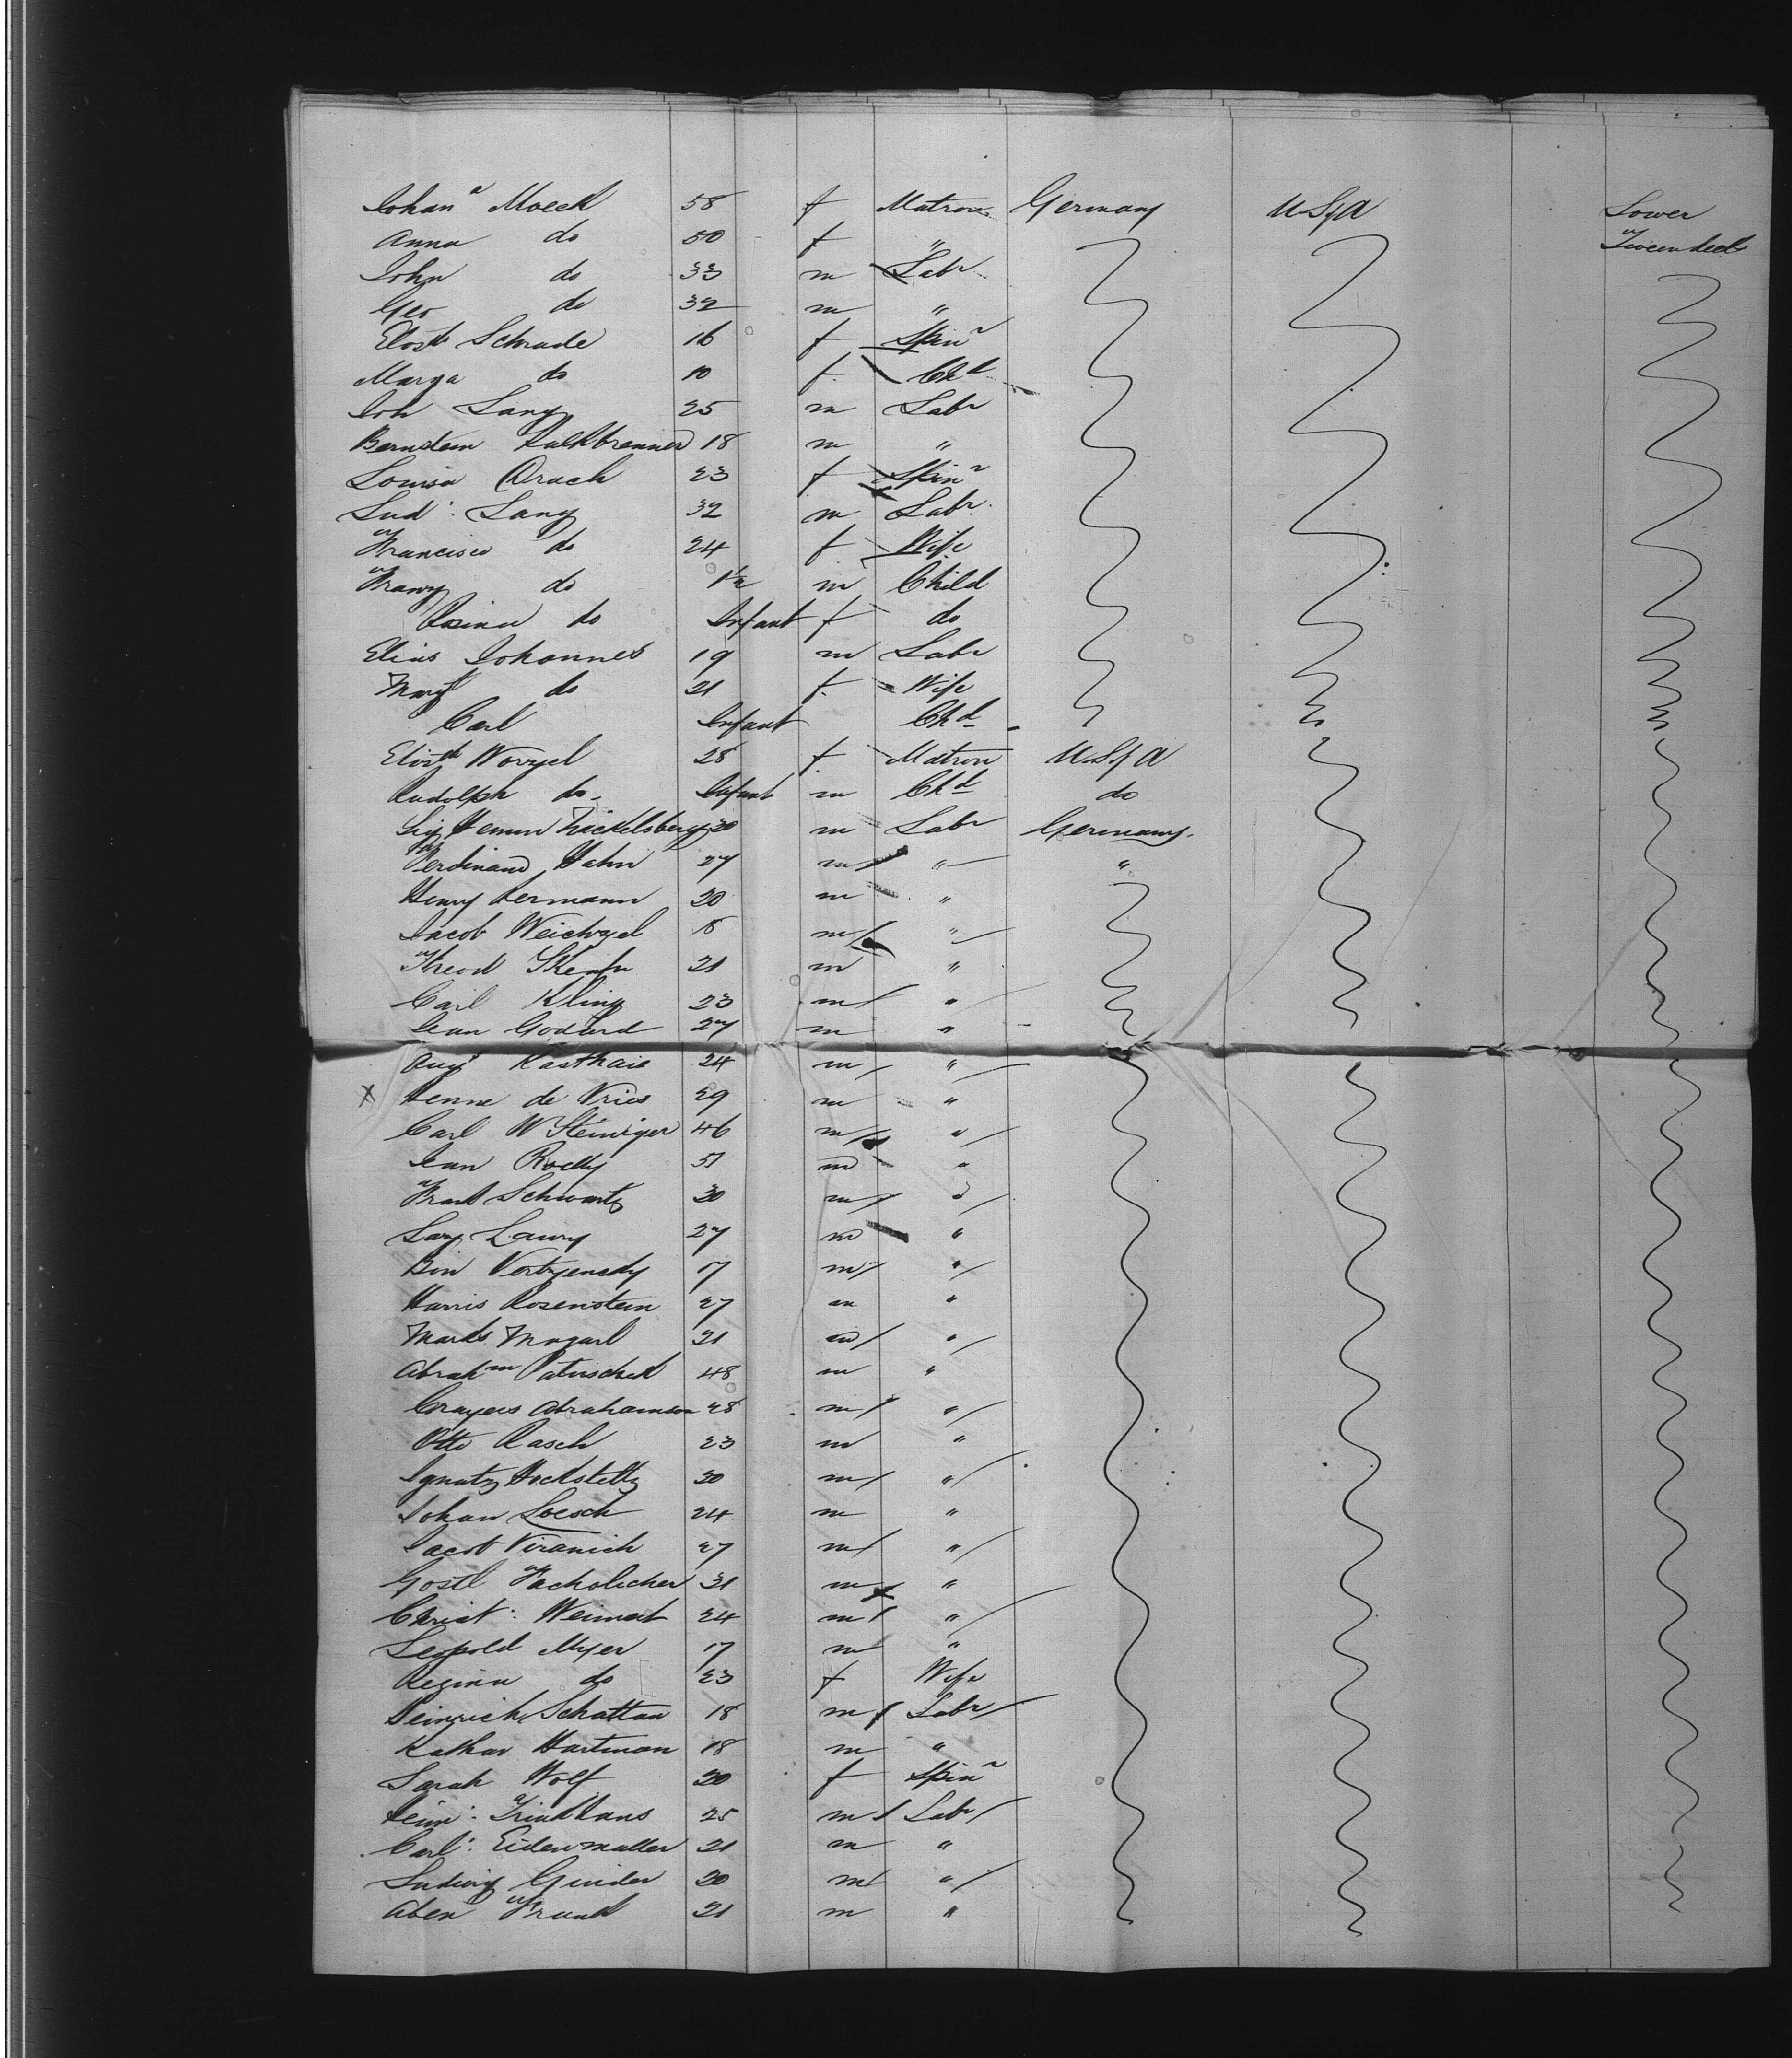 Johan a Moeck 58 f Matron Germany U.S of A Lower
Anna do 50 f " Tweendeck
John do 33 m Labr
Geo do 32 m "
Elisth Schrade 16 f Spinr
Marga do 10 f Chd
Joh Lang 25 m Labr
Bernstein Kalkbrenner 18 m "
Louisa Orach 23 f Spinr
Lud: Lang 32 m Labr
Francisco do 24 f Wife
Franz do 1½ m Child
Rosina do Infant f do
Elias Johannes 19 m Labr
Margt do 21 f Wife
Carl Infant Chd
Elisth Worzel 28 f Matron U.S of A
Rudolph do Infant m Chd do
Sig Hemm Zackelsberg 30 m Labr Germany.
Ferdinand Hahn 27 m " "
Henry Hermann 20 m "
Jacob Weichzel 18 m "
Theod 21 m "
Carl Kling 23 m "
Jean Godard 27 m "
Augt Kasthaie 24 m "
X Henne de Vries 29 m "
Carl W Steiniger 46 m "
Jean Roelly 51 m "
Frank Schwartz 30 m "
Lawy 27 m "
17 m "
Harris Rosenstein 27 m "
Marks 21 m "
Abrahm Patuschek 48 m "
Abrahamson 28 m "
Otto Rasch 23 m "
Ignatz Hockstettz 30 m "
Johan Loesch 24 m "
Jacob Viranich 27 m "
Gostl 31 m "
Christ: Weimert 24 m "
Leopold Myer 17 m "
Regina do 23 f Wife
Heinrich Schattan 18 m Labr
Kathar Hartman 18 m "
Sarah Wolf 20 f Spinr
Hein: Trinkhaus 25 m Labr
Carl: Eidenmuller 21 m "
Ludwig Guider 20 m "
Aben Frank 21 m "